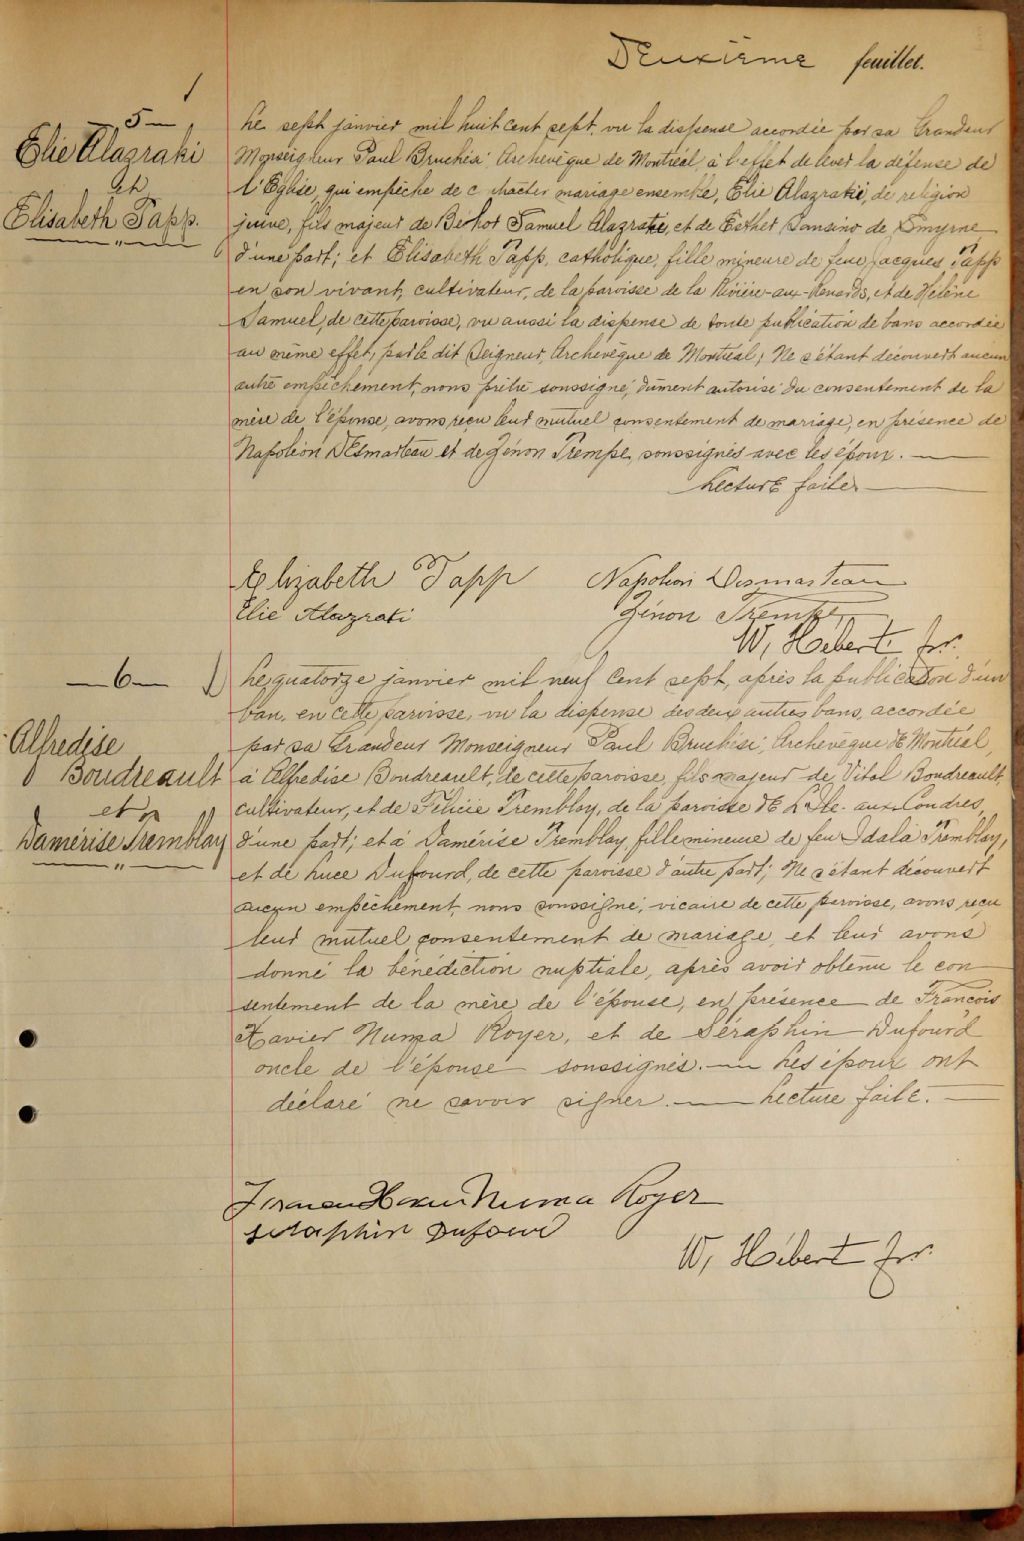 Deuxième feuillet.
5
Elie Alazraki
et
Elisabeth Tapp.
Le sept janvier mil huit cent sept, vu la dispense accordée par sa Grandeur
Monseigneur Paul Bruchési Archevêque de Montréal, à l'effet de lever la défense de
l'Eglise, qui empêche de contracter mariage ensemble, Elie Alazraki, de religion
juive, fils majeur de Samuel Alazraki, et de Esther Sansino de Smyrne
d'une part; et Elisabeth Tapp, catholique, fille mineure de feu Jacques Tapp
en son vivant, cultivateur, de la paroisse de la Rivière-aux-Renards, et de Hélène
Samuel, de cette paroisse, vu aussi la dispense de toute publication de bans accordée
au même effet, par le dit Seigneur, Archevêque de Montréal; Ne s'étant découvert aucun
autre empêchement, nous prêtre soussigné, dûment autorisé du consentement de la
mère de l'épouse, avons reçu leur mutuel consentement de mariage, en présence de
Napoléon DEsmarteau et de Zénon Trempe, soussignés avec les époux.
LecturE faite.
Elizabeth Tapp
Napoléon Desmarteau
Elie Alazraki
Zénon Trempe,
W, Hébert ptr.
6
Alfredise
Boudreault
et
Damérise Tremblay
Le quatorze janvier mil neuf cent sept, après la publication d'un
ban, en cette paroisse, vu la dispense des deux autres bans, accordée
par sa Grandeur Monseigneur Paul Bruchési, Archevêque dE Montréal,
à Alfredise Boudreault, de cette paroisse, fils majeur de Vital Boudreault,
cultivateur, et de Félicie Tremblay, de la paroisse dE L'Ile-aux-Coudres,
d'une part; et à Damérise Tremblay, fille mineure de feu Idala Tremblay,
et de Luce Dufourd, de cette paroisse d'autre part; Ne s'étant découvert
aucun empêchement, nous soussigné, vicaire de cette paroisse, avons reçu
leur mutuel consentement de mariage, et leur avons
donné la bénédiction nuptiale, après avoir obtenu le con
sentement de la mère de l'épouse, en présence de François
Xavier Numa Royer, et de Séraphin Dufourd
oncle de l'épouse soussignés. Les époux ont
déclaré ne savoir signer. Lecture faite.
Xavier Numa Royer
Séraphin Dufour
W, Hébert ptr.